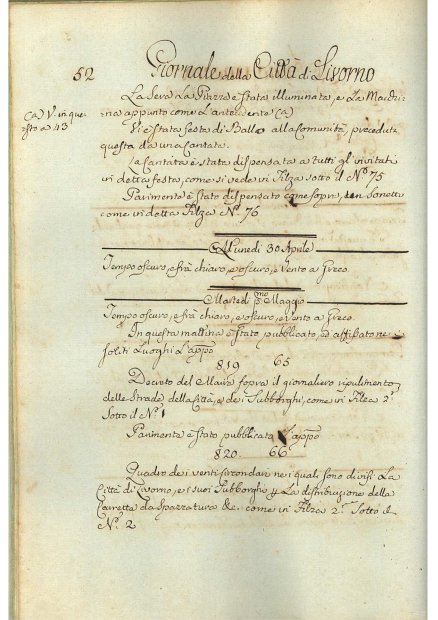 52
Giornale della Città di Livorno
(A) V. in que=
sto a 43
La Sera La Piazza è stata illuminata, e La Macchi=
na appunto come L'antecente (A)
Vi è stata festa di Ballo alla Comunità, preceduta
questa da una Cantata.
La Cantata è stata dispensata a tutti gl'invitati
in detta festa, come si vede in Filza sotto il N.º 75
Parimente è stato dispensato come sopra, un Sonetto
come in detta Filza N.º 76
Lunedì 30 Aprile
Tempo oscuro, e frà chiaro, e oscuro, e Vento a Greco
Martedì p.mo Maggio
Tempo oscuro, e frà chiaro, e oscuro, e Vento a Greco.
In questa mattina è stato pubblicato, ed affissato ne
soliti Luoghi L'appo
819 65
Decreto del Mair sopra il giornaliero ripulimento
delle Strade della Città, e dei Subborghi, come in Filza 2ª
Sotto il N.º 1
Parimente è stato pubblicato L'appo
820. 66
Quadro dei venti circondari ne i quali sono divisi La
Città di Livorno, e i suoi Subborghi La distribuzione della
Carretta da Spazzatura &c. come in Filza 2ª Sotto il
N.º 2